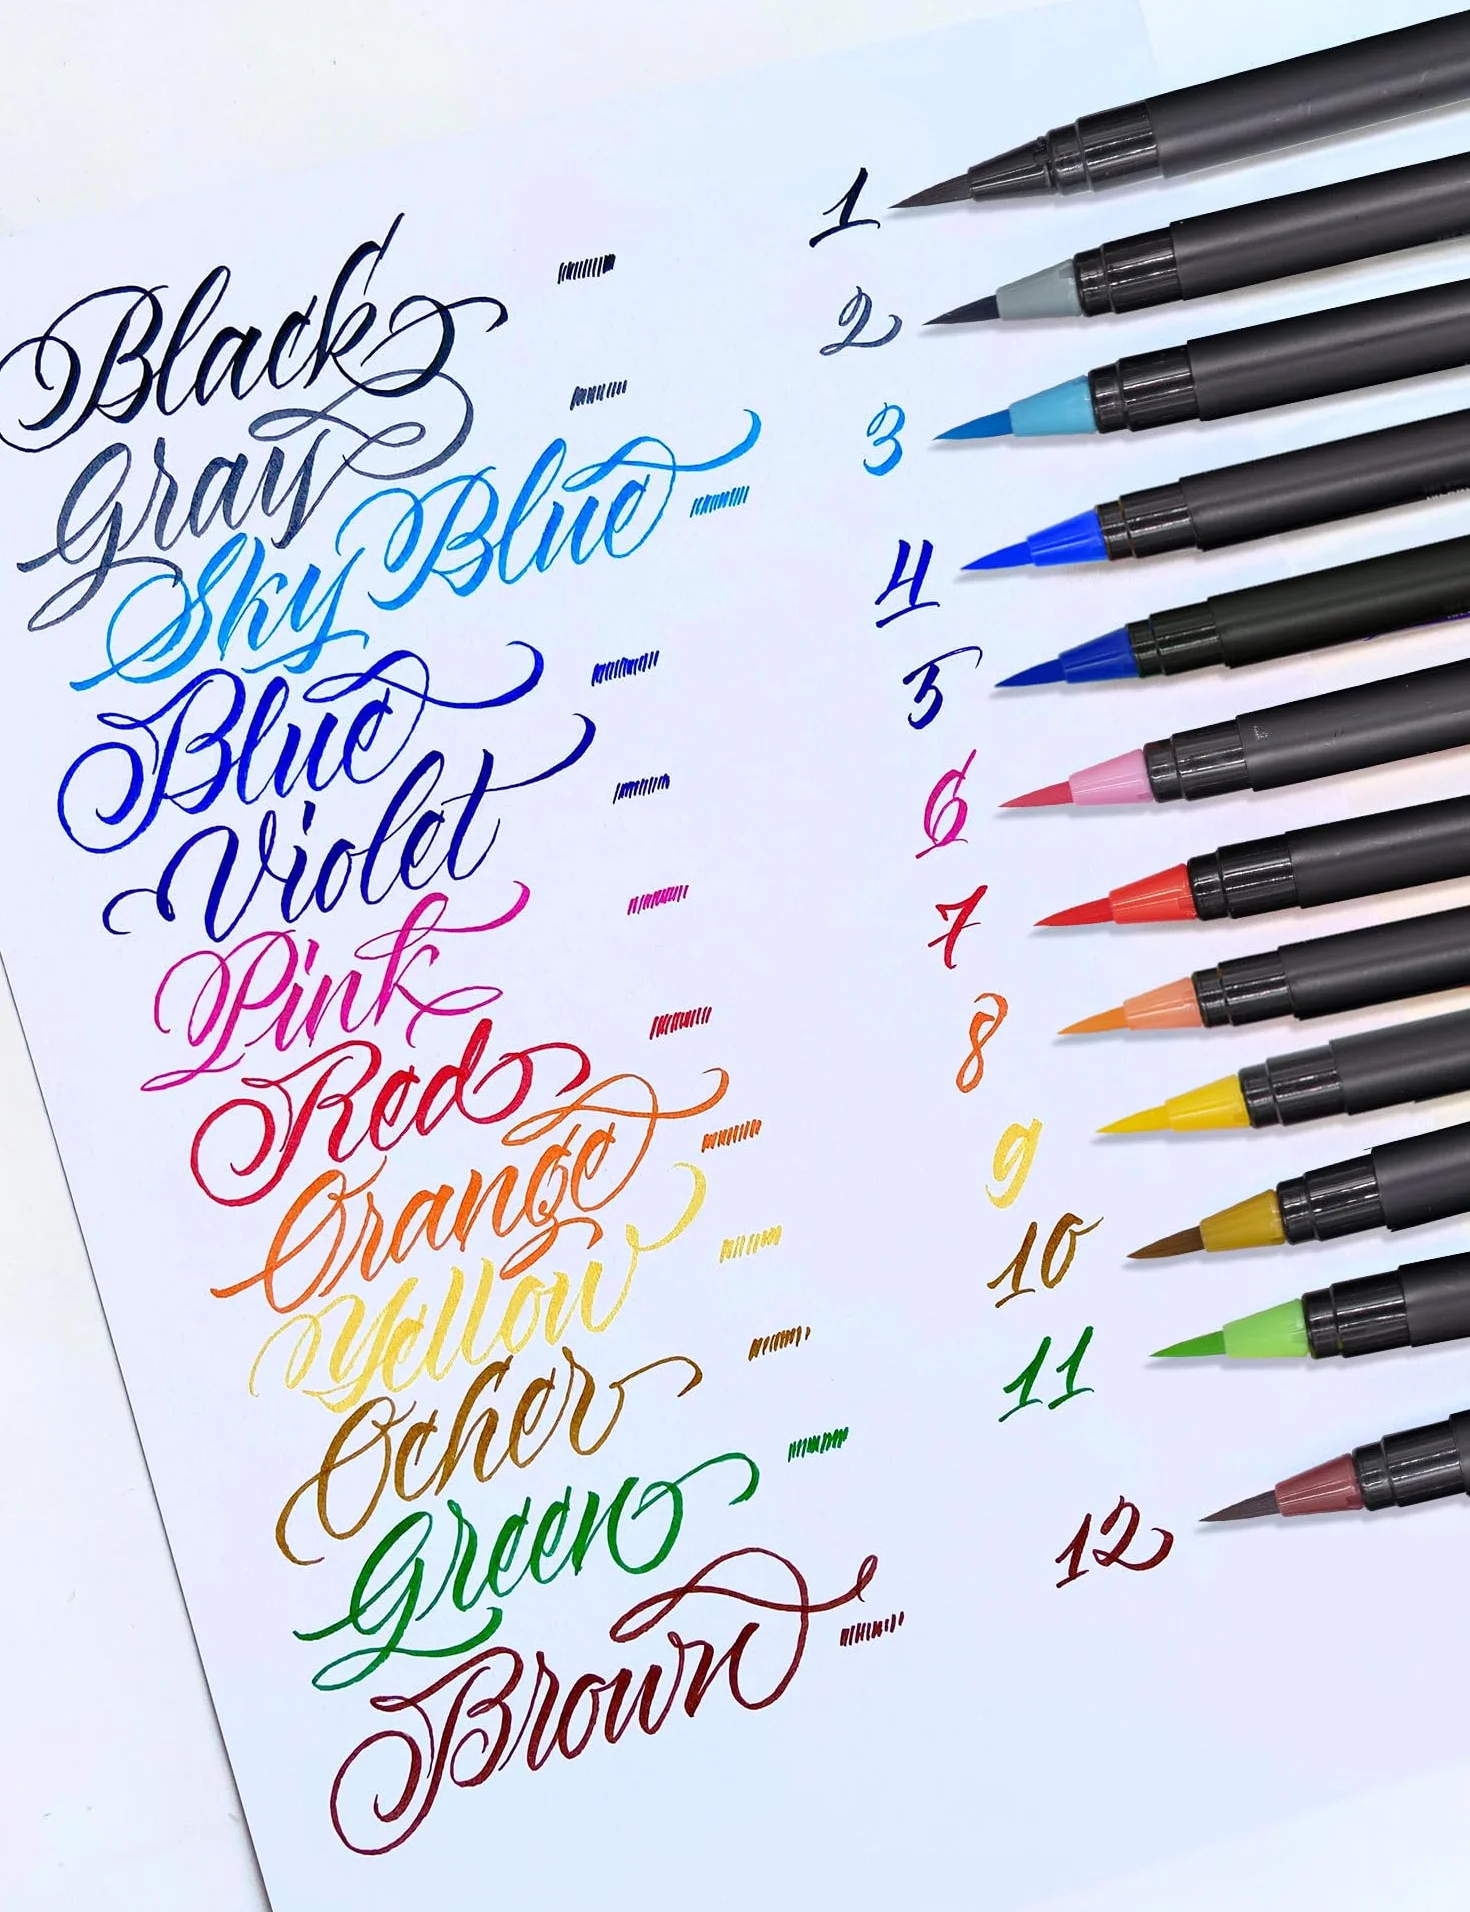 Black 1
Gray 2
Sky Blue 3
Blue 4
Violet 5
Pink 6
Red 7
Orange 8
Yellow 9
Ocher 10
Green 11
Brown 12